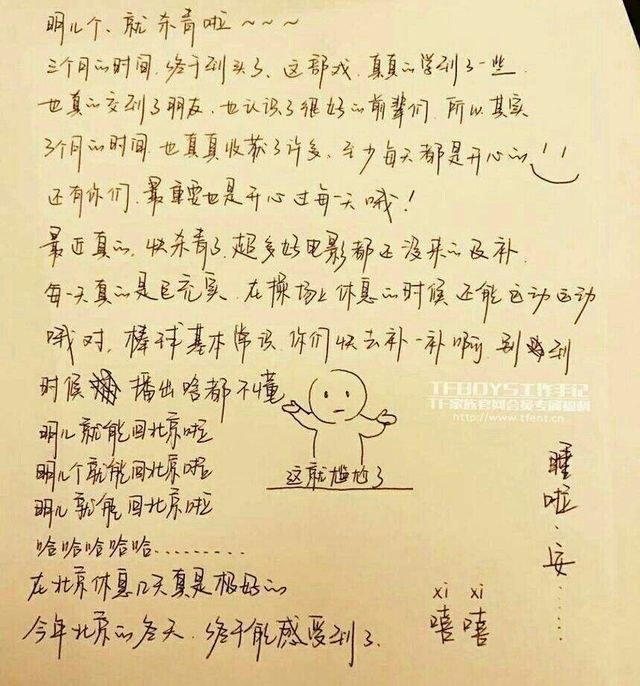 明儿个、就杀青啦～～～
三个月的时间,终于到头了、这部戏,真真的学到了一些
也真的交到了朋友,也认识了很好的前辈们,所以其实
3个月的时间,也真真收获了许多,至少每天都是开心的
还有你们,最重要也是开心过每一天哦!
最近真的,快杀青了,超多好电影都还没来的及补.
每一天真的是巨充实、在操场上休息的时候还能运动运动
哦对,棒球基本常识,你们快去补一补啊,别到
时候播出啥都不懂
这就尴尬了
明儿就能回北京啦
明儿个就能回北京啦
明儿就能回北京啦
哈哈哈哈哈.........
在北京休息几天真是极好的
今年北京的冬天,终于能感受到了、
睡啦、安......
xi xi
嘻嘻
TFBOYS工作手记
TF家族官网会员专属福利
http://www.tfent.cn